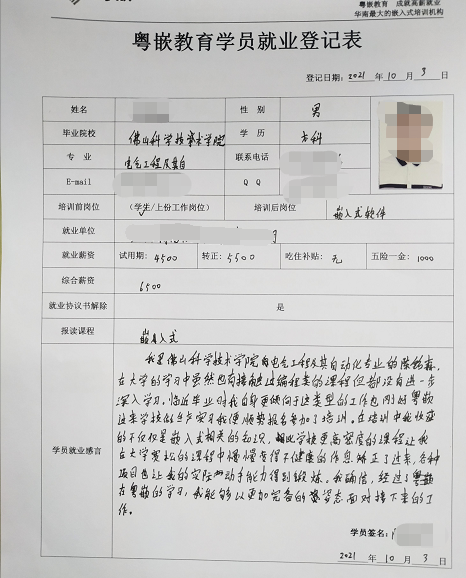 粤嵌教育 成就高薪就业
华南最大的嵌入式培训机构
粤嵌教育学员就业登记表
登记日期：2021 年 10 月 3 日
姓名 性 别 男
毕业院校 佛山科学技术学院 学 历 本科
专 业 电气工程及其自 联系电话
E-mail Q Q
培训前岗位 (学生/上份工作岗位) 培训后岗位 嵌入式软件
就业单位
就业薪资 试用期: 4500 转正: 5500 吃住补贴: 无 五险一金: 1000
综合薪资 6500
就业协议书解除 是
报读课程 嵌入式
学员就业感言
我是佛山科学技术学院的电气工程及其自动化专业的陈
在大学的学习中虽然也有接触过编程类的课程但都没有进一步
深入学习。临近毕业时我自即更倾向于这类型的工作也刚好粤嵌
过来学校的生产实习我便顺势报名参加了培训。在培训中我收获
的不仅仅是嵌入式相关的知识，相比学校更高密度的课程让我
在大学宽松的课程中慢慢变得不健康的作息矫正了过来，各种
项目也让我的实际动手能力得到锻炼。我确信，经过了粤嵌
在粤嵌的学习，我能够以更加完备的姿态面对接下来的工
作。
学员签名:
2021 年 10 月 3 日